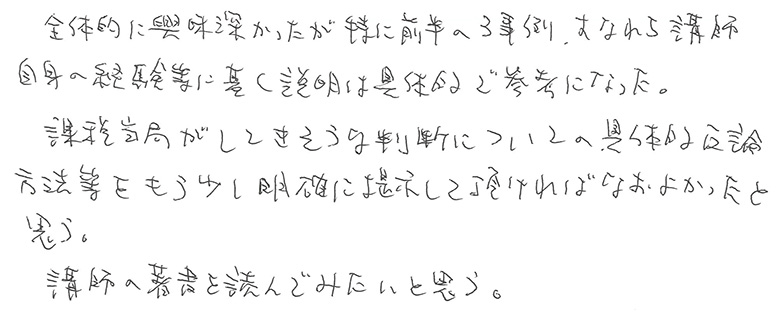 全体的に興味深かったが特に前半の3事例、すなわち講師
自身の経験等に基く説明は具体的で参考になった。
課税当局がしてきそうな判断についての具体的な反論
方法等をもう少し明確に提示して頂ければなおよかったと
思う。
講師の著書を読んでみたいと思う。